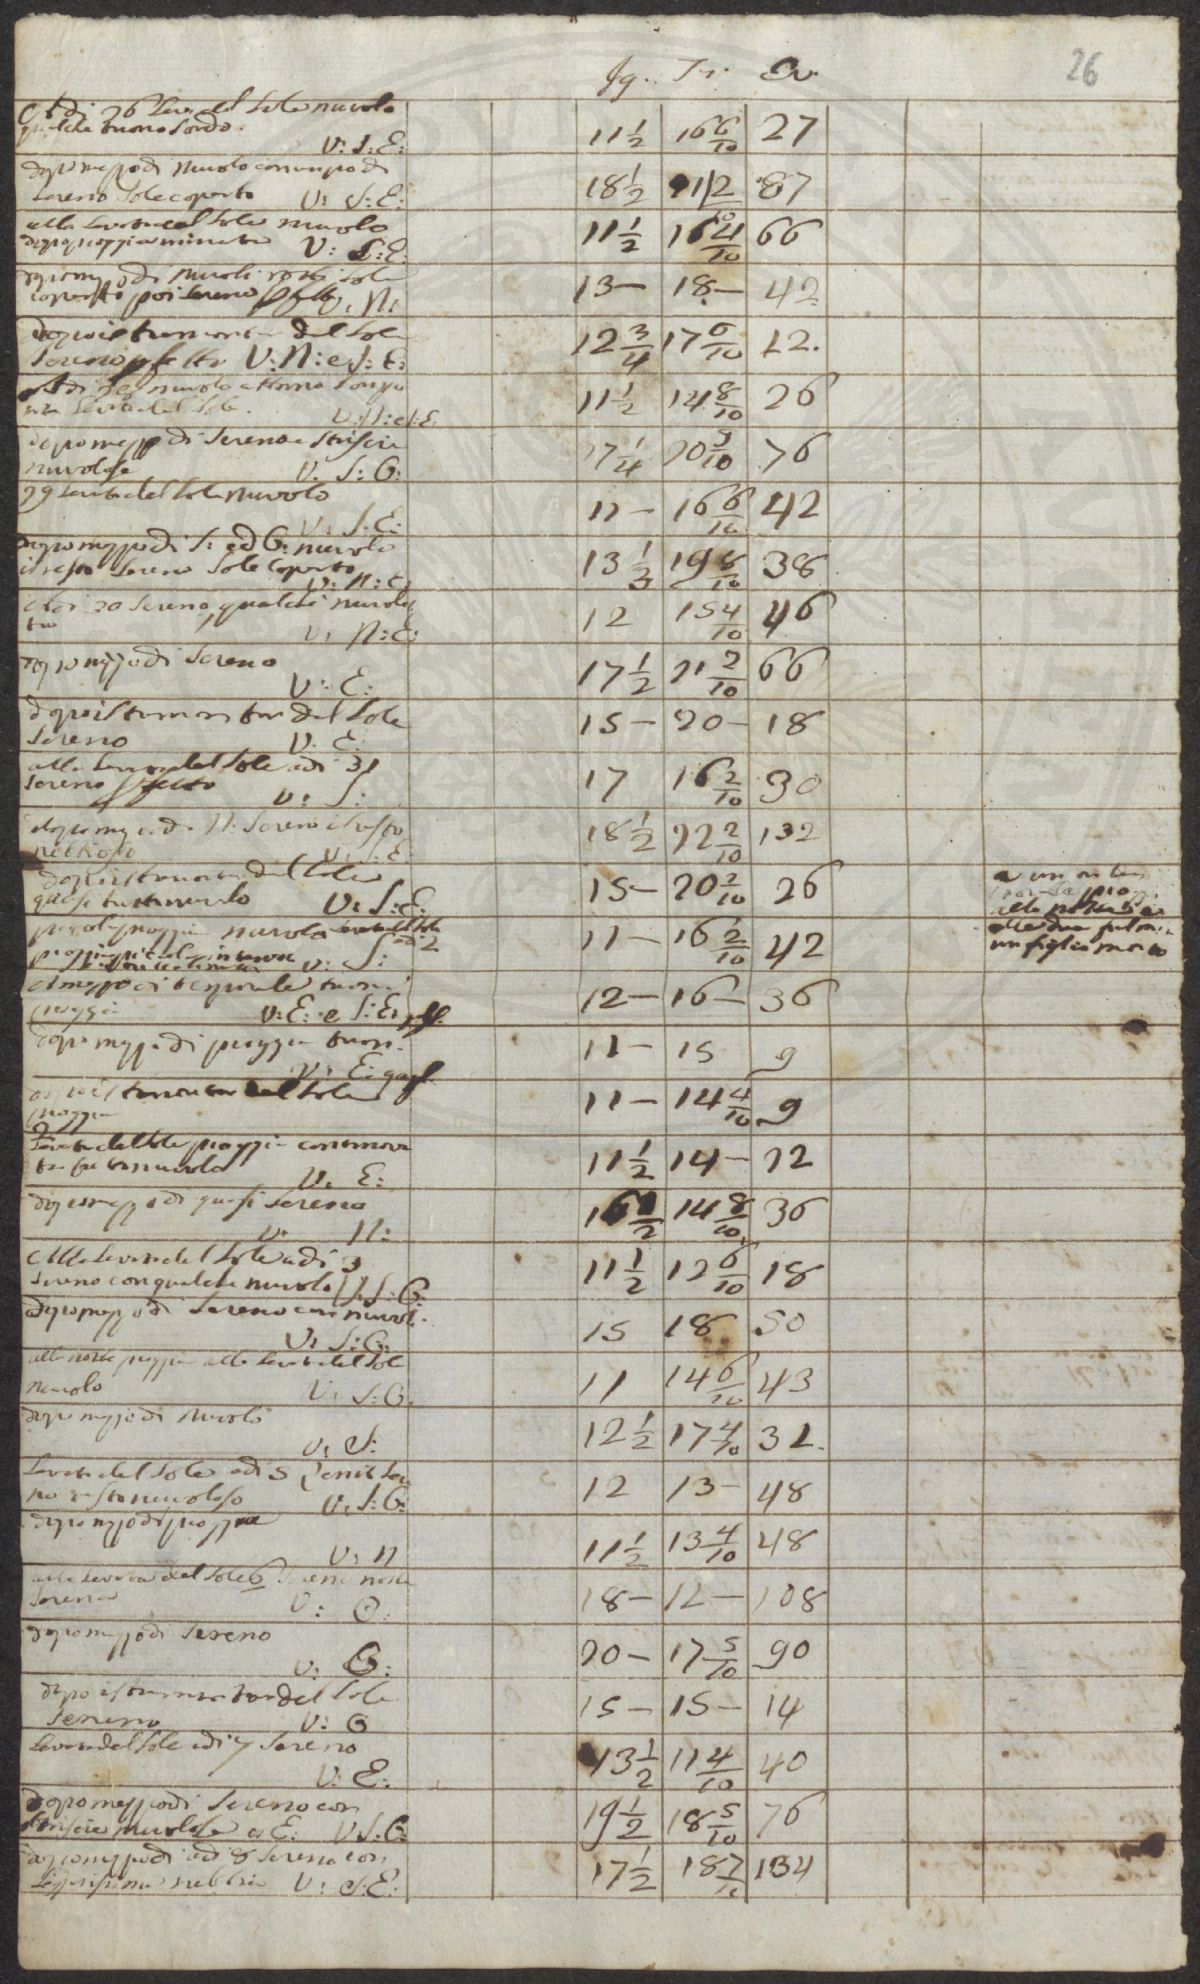 26
Jg. Tr. Ev.
di 26 Leva del Sole nuvolo
qualche tuono sordo.
V: S: E: 11 1/2 16 6/10 27
dopo mezzo di Nuvolo con un po di
sereno Sole coperto V: S: E: 18 1/2 21/2 87
alla Levata del Sole nuvolo
dopo pioggia minuta V: S: E: 11 1/2 16 4/10 66
dopo mezzo di nuvoli Sole
coperto poi sereno N: 13 — 18 — 42
dopo il tramontar del Sole
Sereno V: N: e S: E: 12 3/4 17 6/10 12.
nuvolo
Levata del Sole. 11 1/2 14 8/10 26
dopo mezzo di Sereno e striscie
nuvolose V: S: O: 17 1/4 20 5/10 76
29 Levata del Sole Nuvolo
V: S: E: 11 — 16 6/10 42
dopo mezzo di S: ed O: nuvolo
il resto Sereno Sole coperto
V: N: E: 13 1/2 19 8/10 38
30 Sereno, qualche nuvolet
ta V: N: E: 12 15 4/10 46
dopo mezzo di Sereno
V: E: 17 1/2 21 2/10 66
dopo il tramontar del Sole
Sereno V: E: 15 — 20 — 18
alla Levata del Sole adi 31
Sereno V: S: 17 16 2/10 30
dopo mezzo di N: Sereno il resto
V: S: E: 18 1/2 22 2/10 132
dopo il tramontar del Sole
quasi tutto nuvolo V: S: E: 15 — 20 2/10 26
piccola pioggia nuvolo Levata del Sole
adi 2
V: S: 11 — 16 2/10 42
alla
alle due
un figlio
a mezzo di temporale tuoni
pioggia V: E: e S: E: 12 — 16 — 36
dopo mezzo di pioggia tuoni.
V: E: 11 — 15 9
dopo il tramontar del Sole
pioggia 11 — 14 4/10 9
Levata del Sole pioggia continova
ta nuvolo
V: E: 11 1/2 14 — 22
dopo mezzo di quasi Sereno
V: N: 16 1/2 14 8/10 36
alla Levata del Sole adi 3
Sereno con qualche nuvolo V: S: O: 11 1/2 12 6/10 18
dopo mezzo di Sereno con nuvoli.
V: S: O: 15 18 50
alla notte pioggia alla Levata del Sole
nuvolo V: S: O: 11 14 6/10 43
dopo mezzo di Nuvolo
V: S: 12 1/2 17 4/10 32.
Levata del Sole adi 5 Zenit Sere
no resto nuvoloso V: S: O: 12 13 — 48
dopo mezzo di pioggia
V: N 11 1/2 13 4/10 48
alla Levata del Sole 6 Sereno notte
serena V: O: 18 — 12 — 108
dopo mezzo di Sereno
V: O: 20 — 17 5/10 90
dopo il tramontar del Sole
Sereno V: O 15 — 15 — 14
Levata del Sole adi 7 Sereno
V: E: 13 1/2 11 4/10 40
dopo mezzo di Sereno con
striscie nuvolose a E: V: S: O: 19 1/2 18 5/10 76
dopo mezzo di adi 8 Sereno con
leggerissima nebbia V: S: E: 17 1/2 18 7/10 134